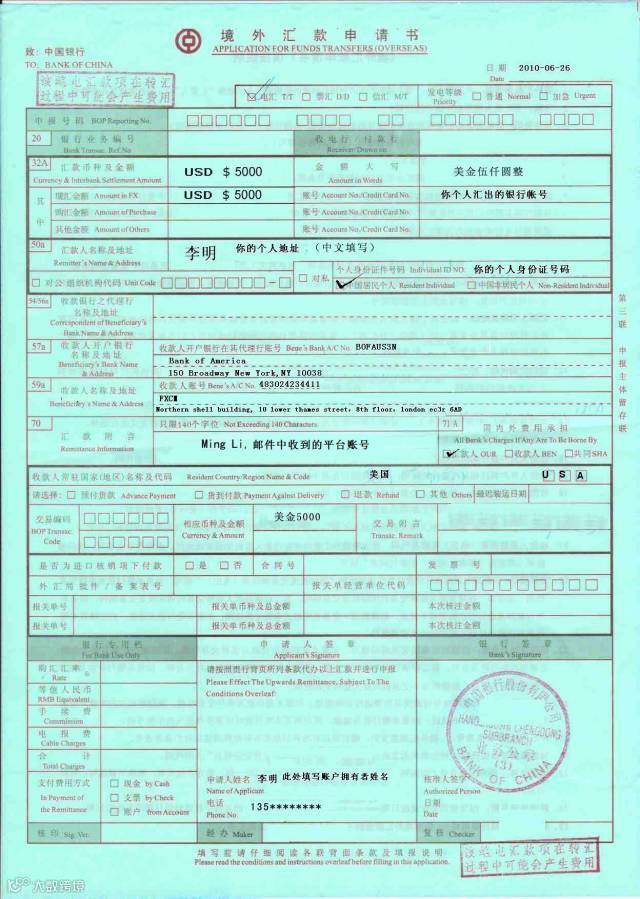 境外汇款申请书
APPLICATION FOR FUNDS TRANSFERS (OVERSEAS)
致: 中国银行
TO: BANK OF CHINA
日期 2010-06-26
Date
该笔电汇款项在转汇
过程中可能会产生费用
电汇 T/T 票汇 D/D 信汇 M/T 发电等级 Priority 普通 Normal 加急 Urgent
申报号码 BOP Reporting No.
20 银行业务编号 Bank Transac. Ref.No 收电行/付款行 Receiver/Drawn on
32A 汇款币种及金额 Currency & Interbank Settlement Amount USD $ 5000 金额大写 Amount in Words 美金伍仟圆整
其中 现汇金额 Amount in FX USD $ 5000 账号 Account No./Credit Card No. 你个人汇出的银行帐号
购汇金额 Amount of Purchase 账号 Account No./Credit Card No.
其他金额 Amount of Others 账号 Account No./Credit Card No.
50a 汇款人名称及地址 Remitter's Name & Address 李明 你的个人地址 (中文填写)
个人身份证件号码 Individual ID NO. 你的个人身份证号码
对公 组织机构代码 Unit Code 对私 中国居民个人 Resident Individual 中国非居民个人 Non-Resident Individual
54/56a 收款银行之代理行名称及地址 Correspondent of Beneficiary's Bank Name & Address
57a 收款人开户银行名称及地址 Beneficiary's Bank Name & Address
收款人开户银行在其代理行账号 Bene's Bank A/C No. BOFAUS3N
Bank of America
150 Broadway New York,NY 10038
59a 收款人名称及地址 Beneficiary's Name & Address
收款人账号 Bene's A/C No. 483024234411
FXCM
Northern shell building, 10 lower thames street, 8th floor, london ec3r 6AD
70 汇款附言 Remittance Information
只限140个字位 Not Exceeding 140 Characters
Ming Li, 邮件中收到的平台账号
71A 国内外费用承担
All Bank's Charges If Any Are To Be Borne By
汇款人 OUR 收款人 BEN 共同 SHA
第三联 申报主体留存联
收款人常驻国家(地区)名称及代码 Resident Country/Region Name & Code 美国 U S A
请选择: 预付货款 Advance Payment 货到付款 Payment Against Delivery 退款 Refund 其他 Others 最迟装运日期
交易编码 BOP Transac. Code 相应币种及金额 Currency & Amount 美金5000 交易附言 Transac. Remark
是否为进口核销项下付款 是 否 合同号 发票号
外汇局批件/备案表号 报关单经营单位代码
报关单号 报关单币种及总金额 本次核注金额
报关单号 报关单币种及总金额 本次核注金额
银行专用栏 For Bank Use Only 申请人签章 Applicant's Signature 银行签章 Bank's Signature
购汇汇率 Rate
等值人民币 RMB Equivalent
手续费 Commission
电报费 Cable Charges
合计 Total Charges
支付费用方式 In Payment of the Remittance
现金 by Cash
支票 by Check
账户 from Account
请按照贵行背页所列条款代办以上汇款并进行申报
Please Effect The Upwards Remittance, Subject To The
Conditions Overleaf:
申请人姓名 Name of Applicant 李明 此处填写账户拥有者姓名
电话 Phone No. 135********
SUBBRANCH
BANK OF CHINA
核准人签字 Authorized Person
日期 Date
核印 Sig. Ver. 经办 Maker 复核 Checker
该笔电汇款项在转汇
过程中可能会产生费用
填写前请仔细阅读各联背面条款及填报说明
Please read the conditions and instructions overleaf before filling in this application.
大数跨境